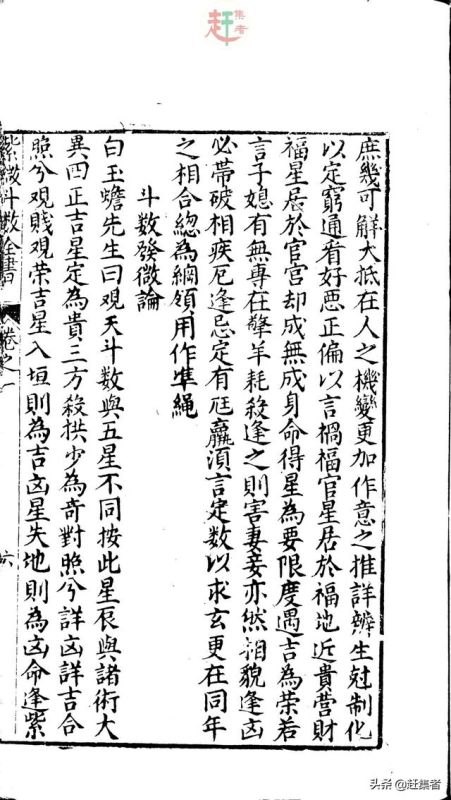 集者
赶
庶幾可觧大抵在人之機變更加作意之推詳辨生尅制化
以定窮通看好惡正偏以言禍福官星居於福地近貴營財
福星居於官宮却成無成身命得星為要限度遇吉為荣若
言子媳有無專在擎羊耗殺逢之則害妻妾亦然相貌逢凶
必帶破相疾厄逢忌定有尫羸須言定数以求玄更在同年
之相合總為綱領用作準繩
斗數發微論
白玉蟾先生曰观天斗数與五星不同按此星辰與諸術大
異四正吉星定為貴三方殺拱少為奇對照兮詳凶詳吉合
照兮观賤观荣吉星入垣則為吉凶星失地則為凶命逢紫
紫微斗数全書 卷之一 六
头条 @赶集者